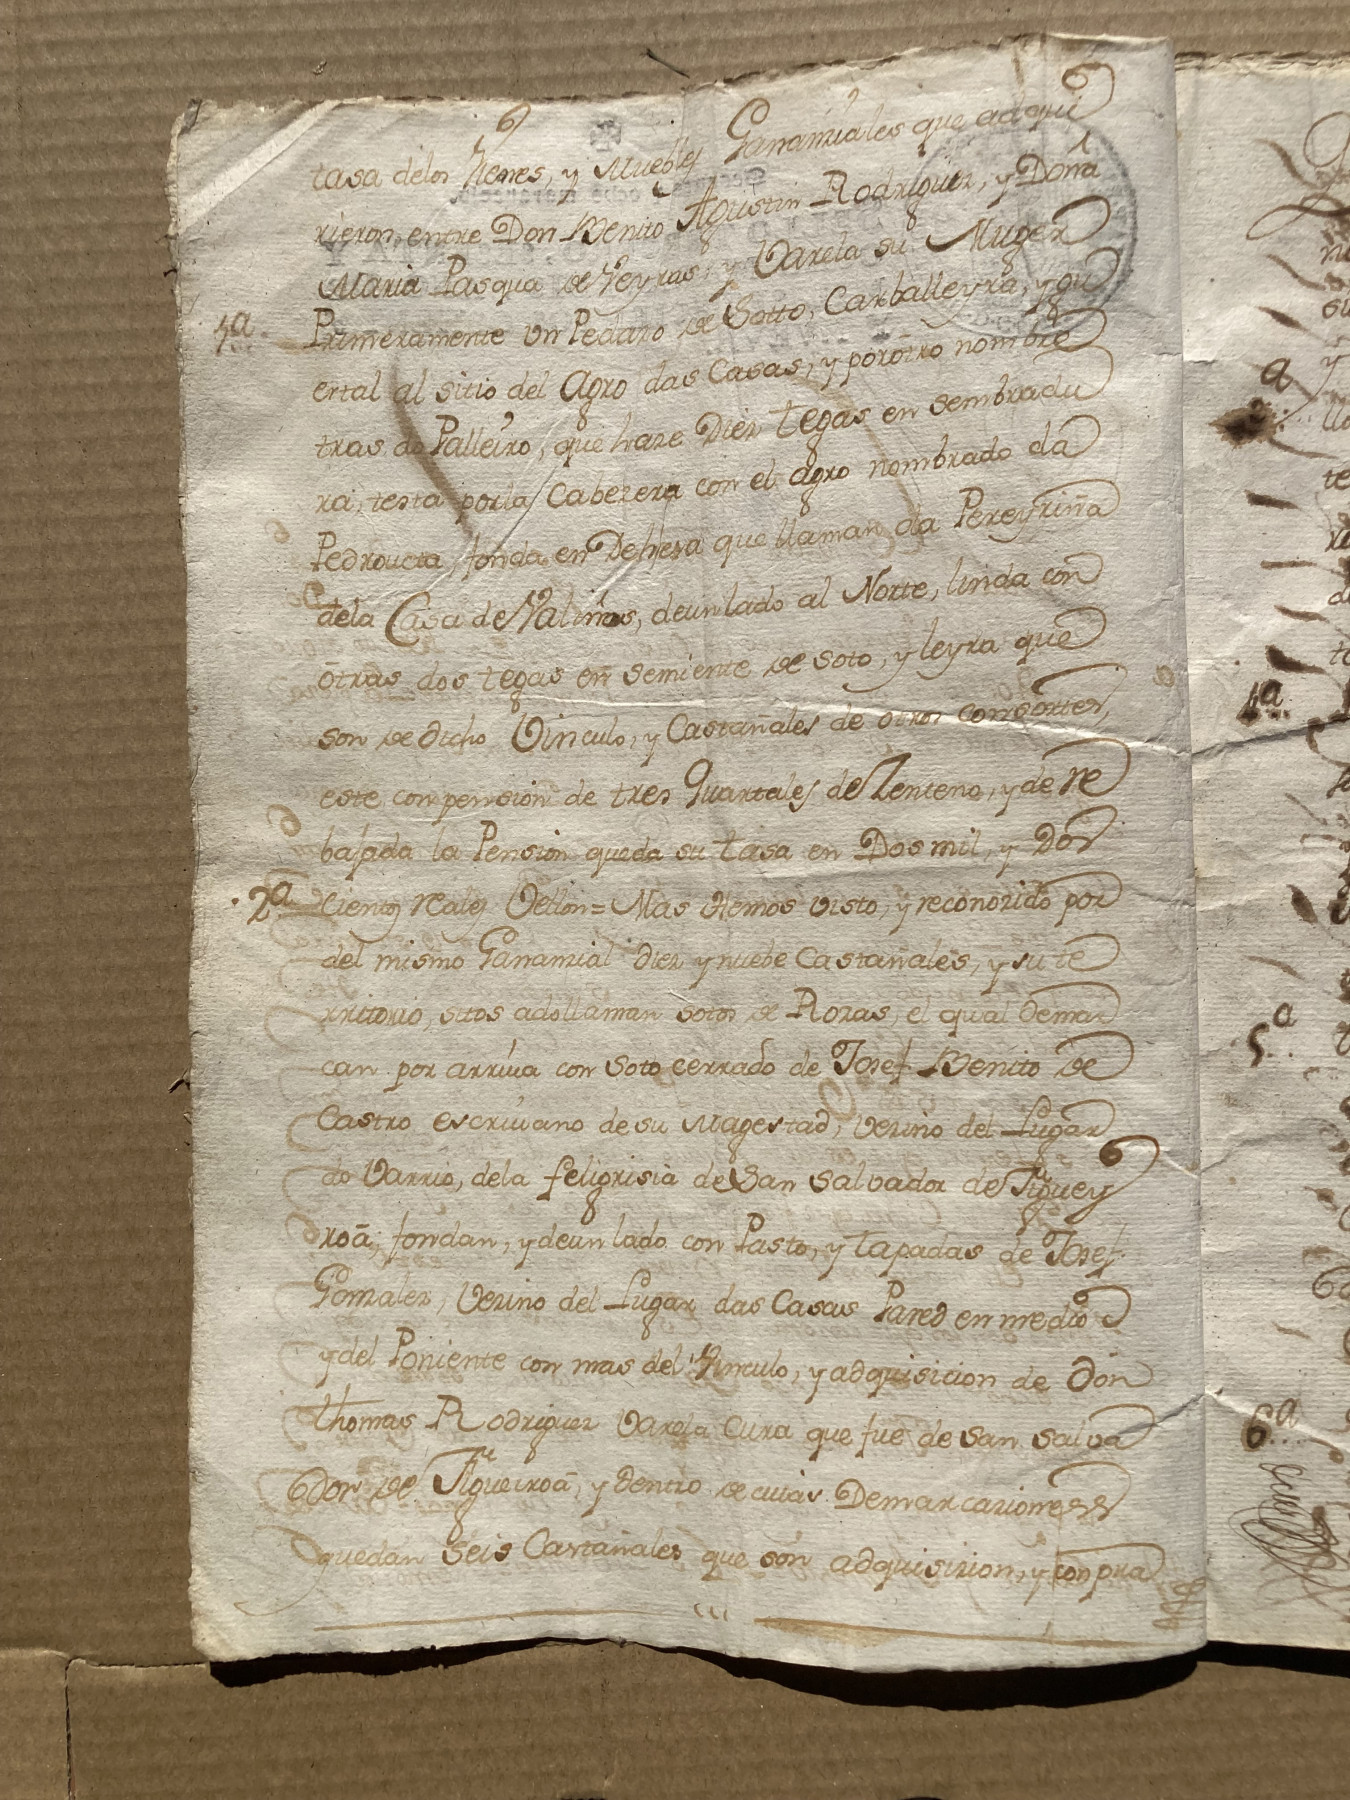 tasa delos Vienes, y Muebles Gananziales que adqui
rieron, entre Don Benito Agustin Rodriguez, y Doña
Maria Pasqua de Neyras, y Varela su Muger
1ª Primeramente un Pedazo de Sotto, Carballeyra, y qu
ertal al sitio del Agro das Casas, y porotro nombre
tras do Palleiro, que haze Diez tegas en sembradu
ra, testa porla Cabezera con el agro nombrado da
Pedroucta, fonda en Dehesa que llaman da Pereyriña
dela Casa de Valiñas, deunlado al Norte, linda con
otras dos tegas en semiente de soto, y leyra que
son de dicho Vinculo, y Castañales de otros consortes,
este con pension de tres Quartales de Zenteno, y de re
bajada la Pension queda su tasa en Dos mil, y dos
2ª cientos reales Vellon = Mas Hemos visto, y reconozido por
del mismo Gananzial diez y nuebe Castañales, y su te
rritorio, sitos adollaman sotos de Rozas, el qual demar
can por arriva con soto cerrado de Josef Benito de
Castro escrivano de su Magestad, vezino del Lugar
do Varrio, dela feligrisia de San Salvador de Figuey
roa, fondan, y deun lado con Pasto, y tapadas de Josef
Gonzalez, vezino del Lugar das Casas Pared en medio
y del Poniente con mas del Vinculo, y adquisicion de don
thomas Rodriguez Varela Cura que fue de san salva
dor de Figueiroa, y dentro de cuias Demarcaziones
quedan seis Castañales que son adquisizion, y conpra
2ª
4ª
5ª
6ª